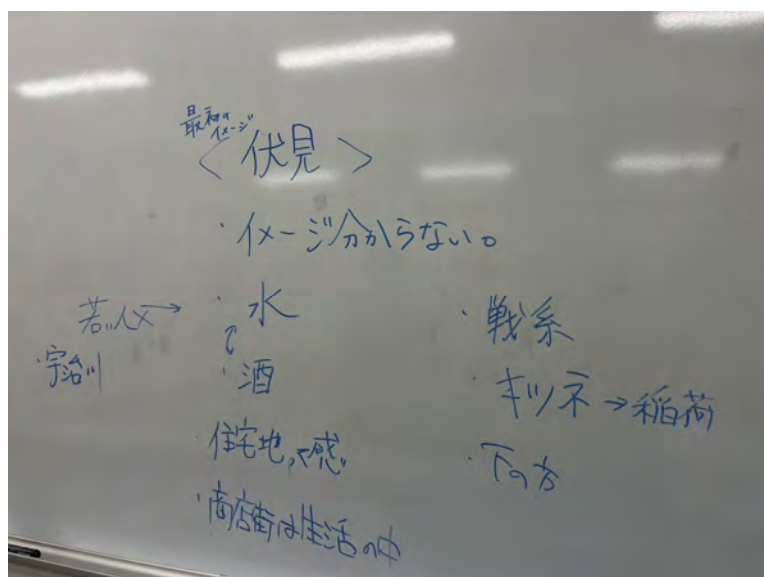 最初の
イメージ
<伏見>
・イメージ分からない。
若い人×→・水
・宇治川
・酒
・住宅地って感じ
・商店街は生活の中
・戦系
・キツネ→稲荷
・下の方